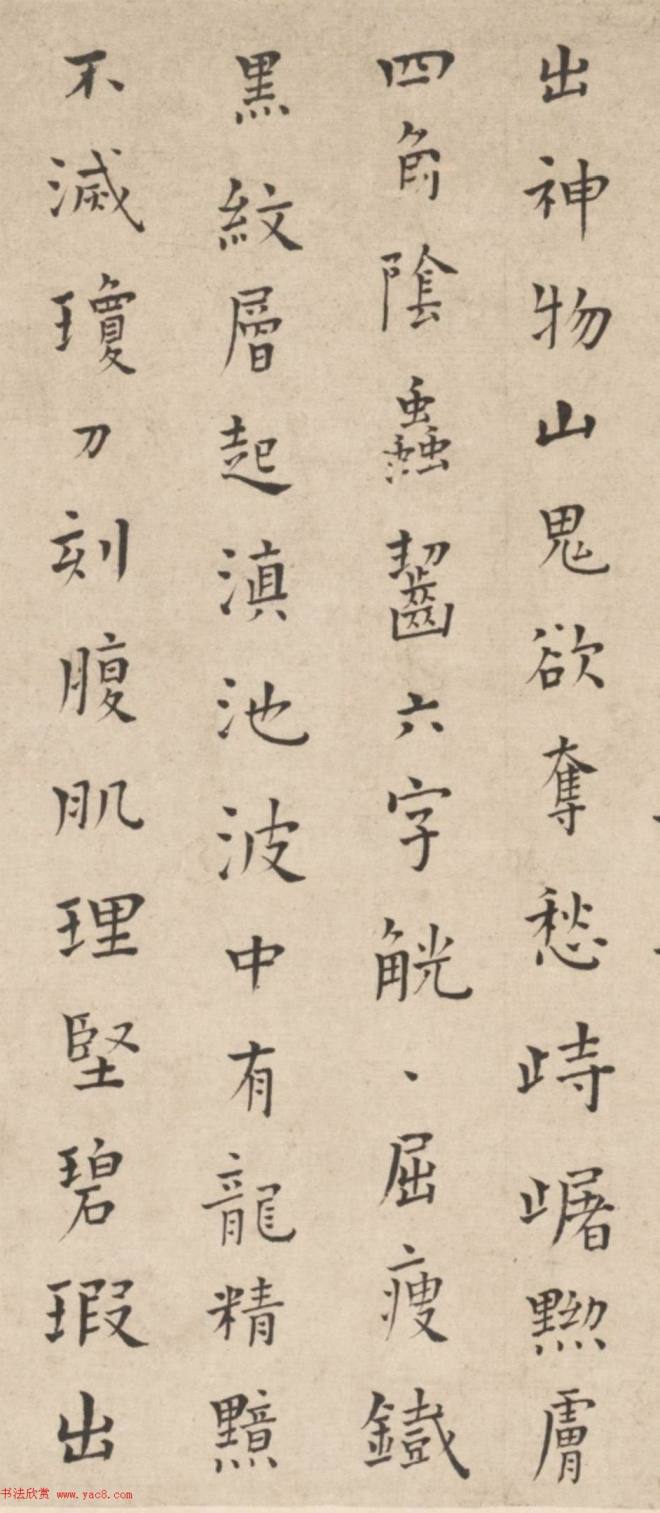 出神物山鬼欲奪愁峙𡺾黝膚
四角陰蟲齧六字觥、屈瘦鐵
黑紋層起滇池波中有龍精黯
不滅瓊刀刻腹肌理堅碧瑕出
书法欣赏 www.yac8.com